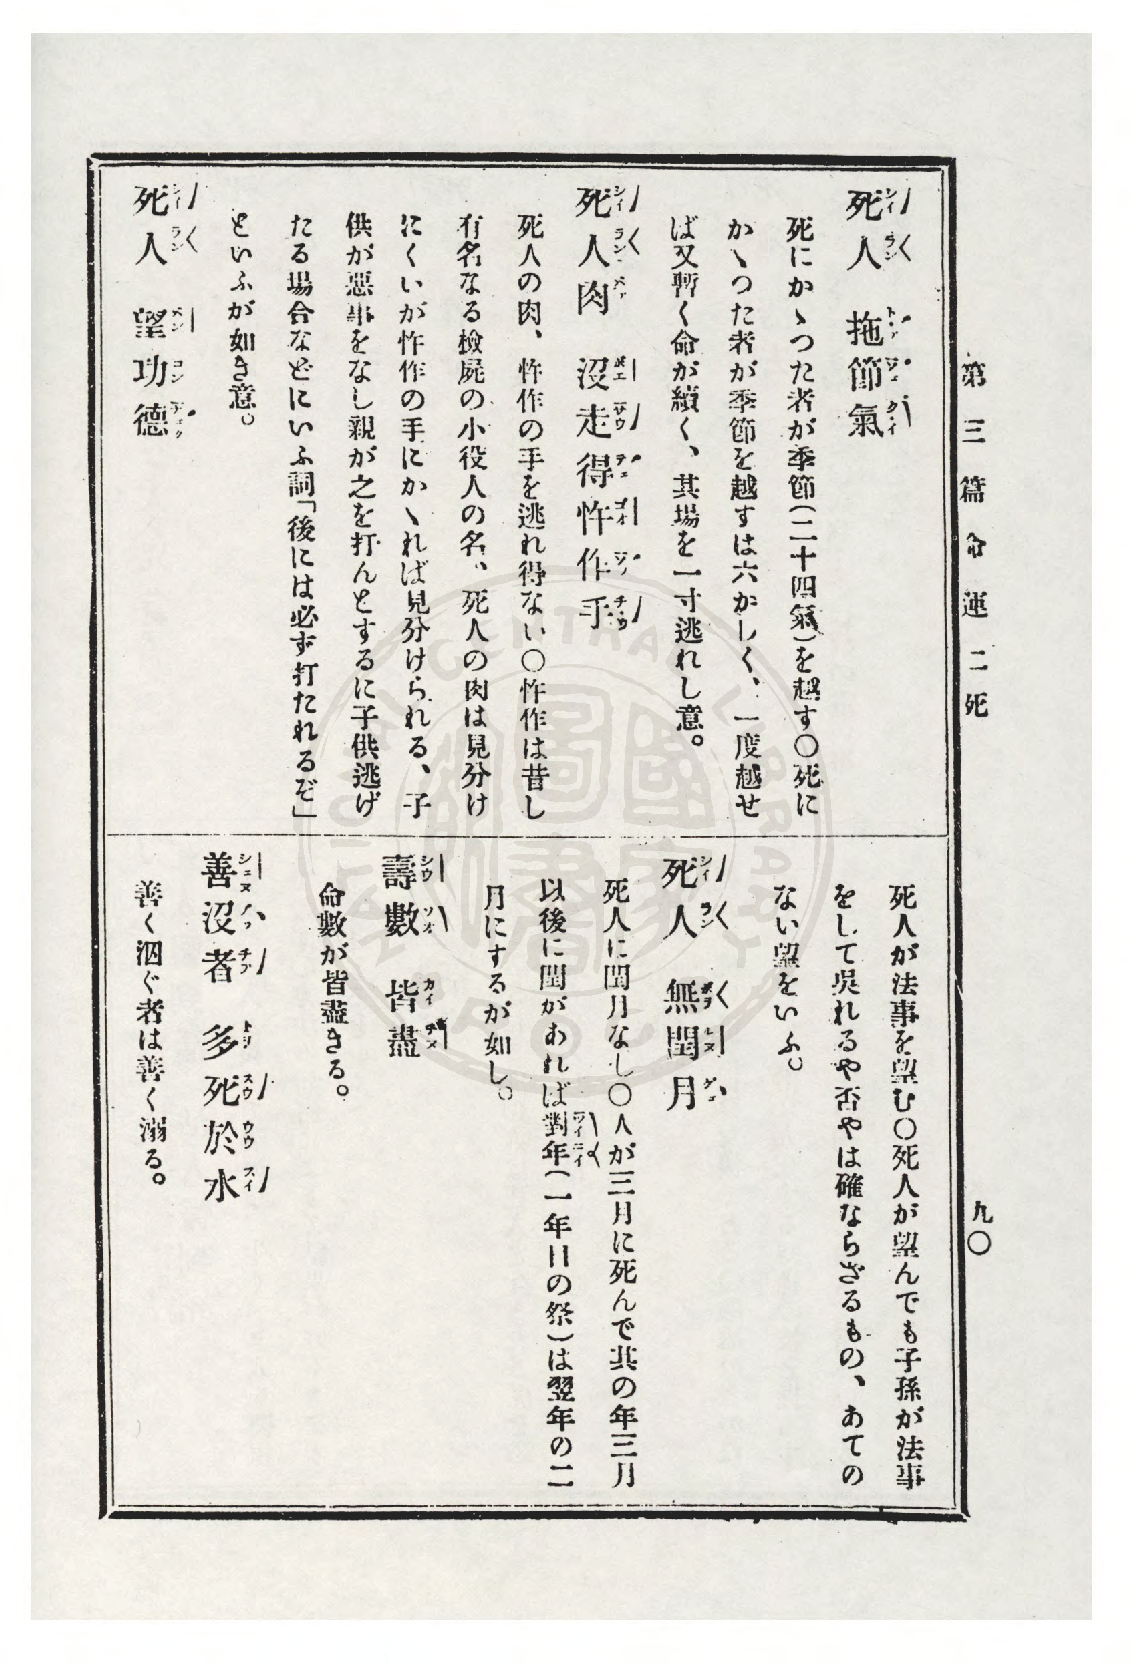 第三篇 命運 二 死
九〇
死人 拖節氣
死にかゝつた者が季節(二十四氣)を越す〇死に
かゝつた者が季節を越すは六かしく、一度越せ
ば又暫く命が續く、其場を一寸逃れし意。
死人肉 沒走得忤作手
死人の肉、忤作の手を逃れ得ない〇忤作は昔し
有名なる檢屍の小役人の名、死人の肉は見分け
にくいが忤作の手にかゝれば見分けられる、子
供が惡事をなし親が之を打んとするに子供逃げ
たる場合などにいふ詞「後には必ず打たれるぞ」
といふが如き意。
死人 望功德
死人が法事を望む〇死人が望んでも子孫が法事
をして吳れるや否やは確ならざるもの、あての
ない望をいふ。
死人 無閏月
死人に閏月なし〇人が三月に死んで其の年三月
以後に閏があれば對年(一年目の祭)は翌年の二
月にするが如し。
壽數 皆盡
命數が皆盡きる。
善沒者 多死於水
善く泅ぐ者は善く溺る。
國家圖書館
NATIONAL CENTRAL LIBRARY